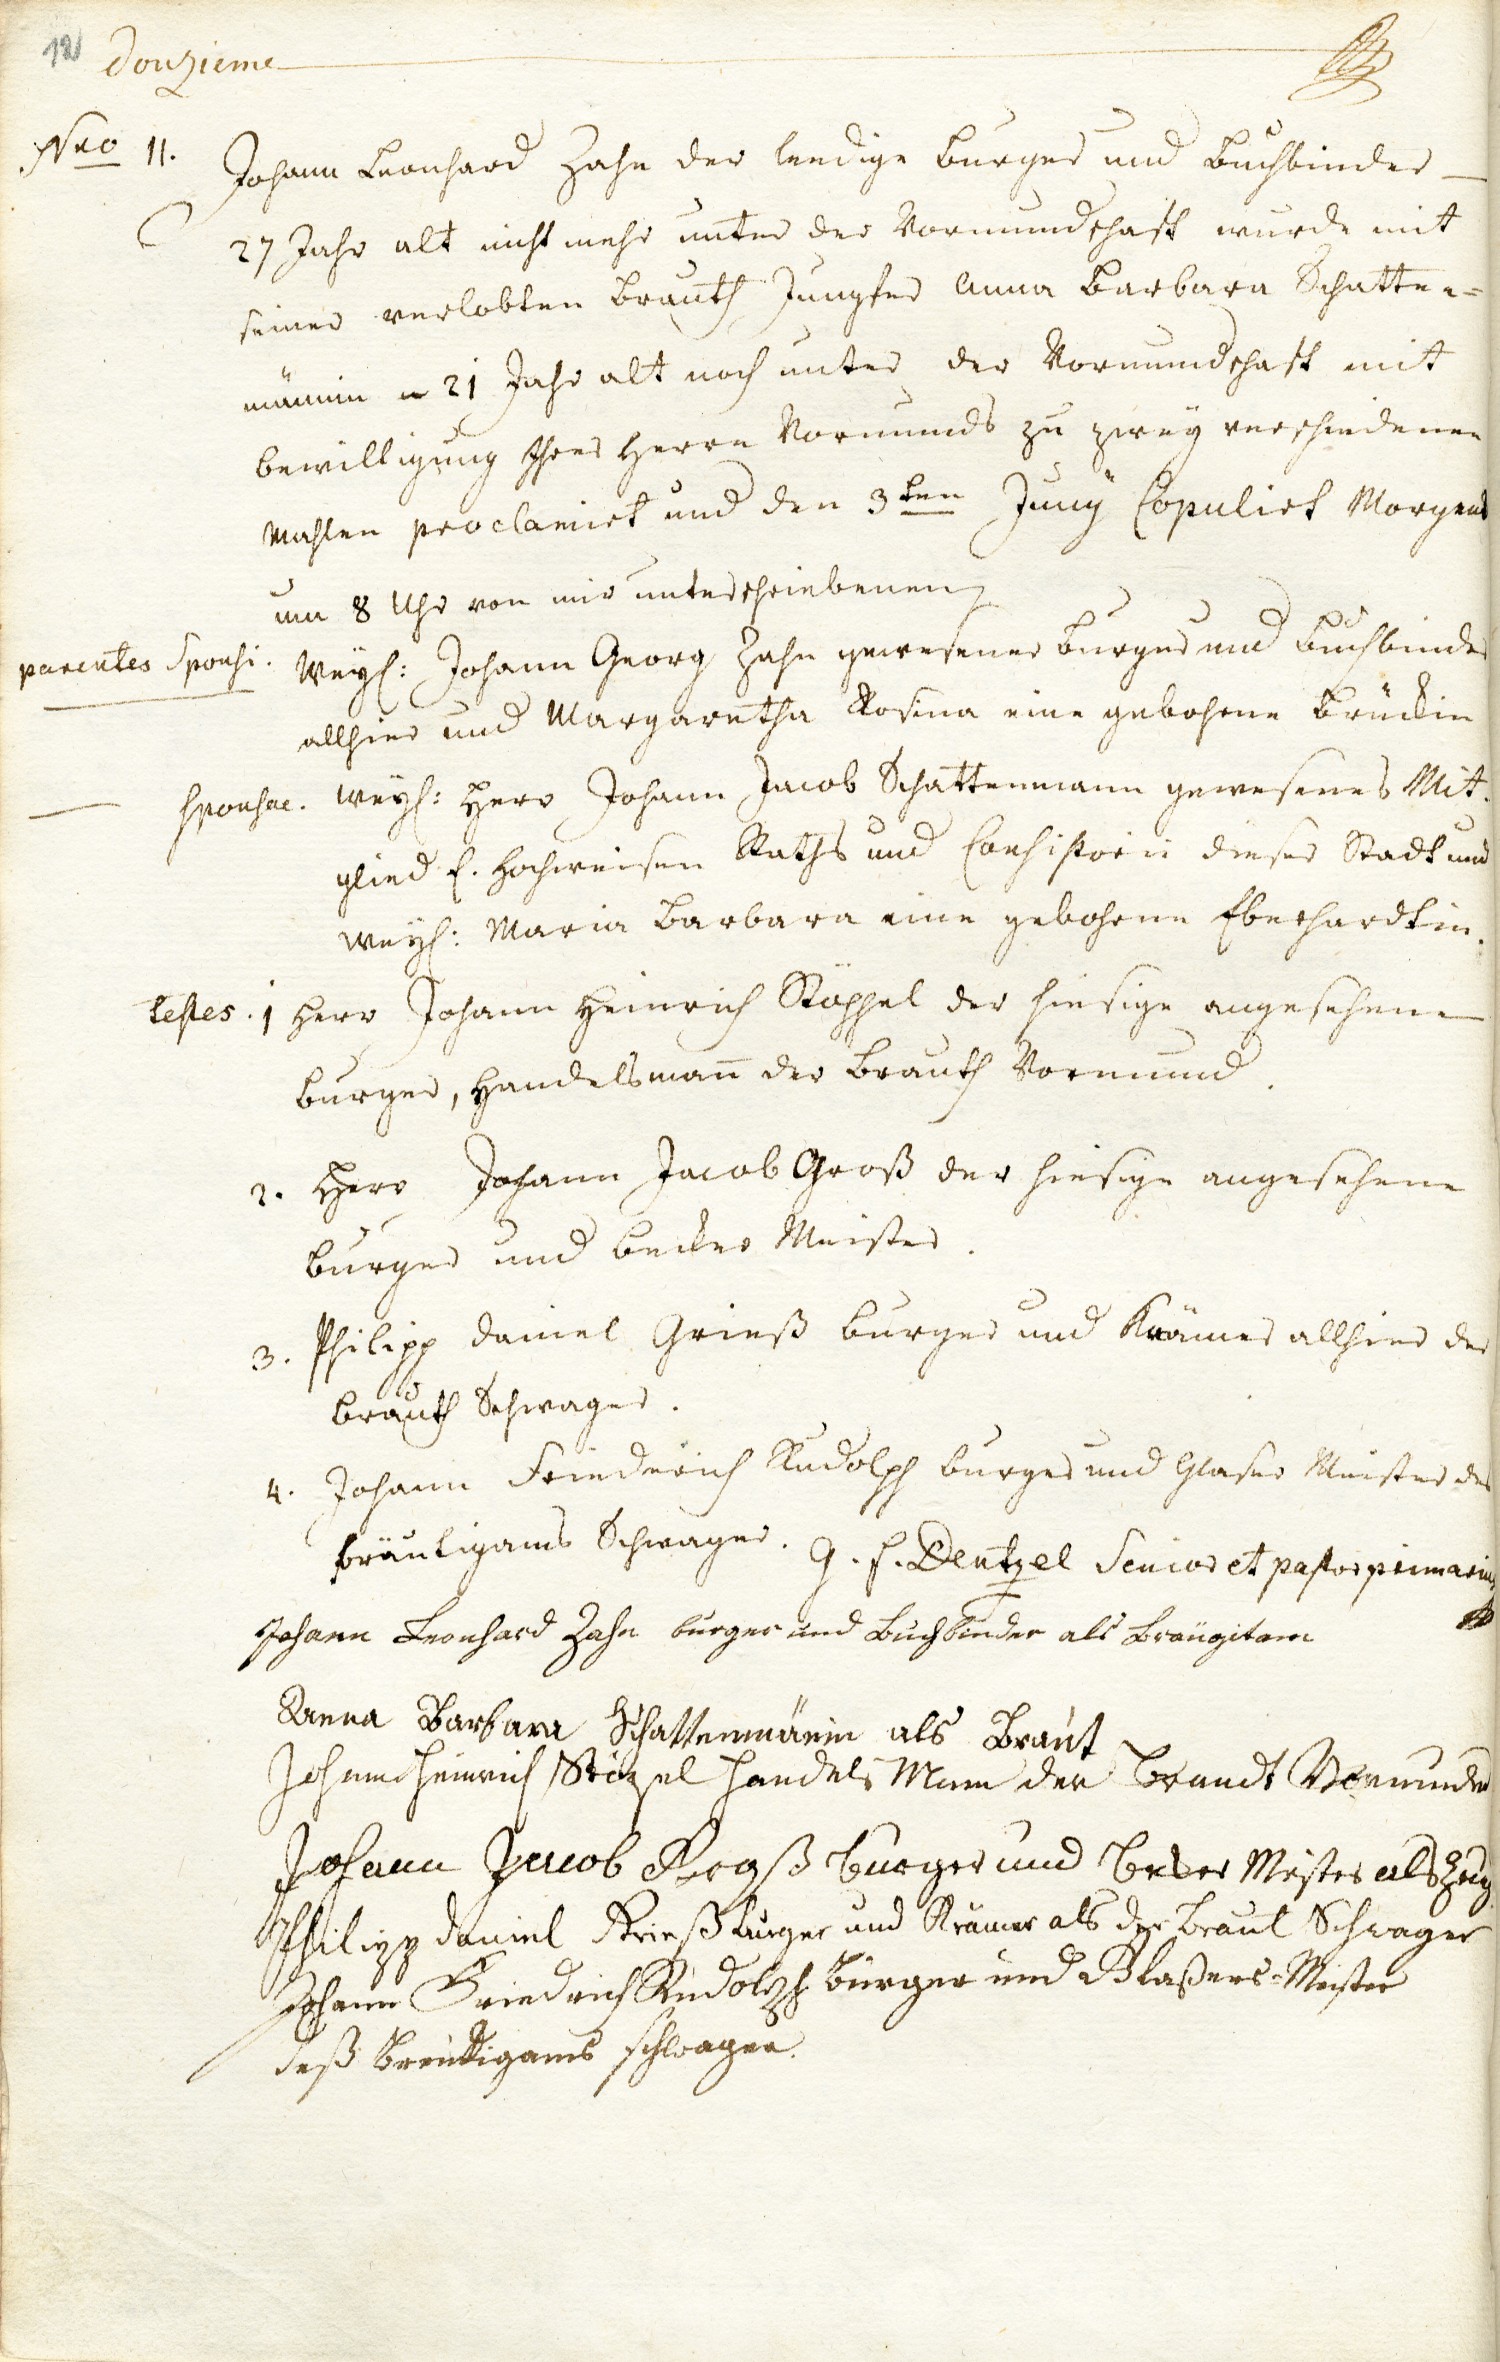 12 douzieme
Nro 11. Johann Leonhard Zahn der leedige burger und buchbinder
27 Jahr alt nicht mehr unter der Vormundschaft wurde mit
seiner verlobten brauth Jungfer Anna Barbara Schatten=
männin 21 Jahr alt noch unter der Vormundschaft mit
bewilligung Ihres Herrn Vormunds zu zweÿ verschiedenen
Mahlen proclamirt und den 3ten Junÿ Copulirt Morgens
um 8 Uhr von mir unterschriebenen
parentes Sponsi. Weyl: Johann Georg Zahn gewesener burger und buchbinder
allhier und Margaretha Rosina eine gebohrne
— Sponsae. Weyl: Herr Johann Jacob Schattenmann gewesenes Mit-
glied E. Hochweisen Raths und Consistorii dieser Stadt und
Weyl: Maria Barbara eine gebohrne Eberhardtin.
testes. 1 Herr Johann Heinrich der hiesige angesehene
burger, Handelsmañ der brauth Vormund.
2. Herr Johann Jacob Groß der hiesige angesehene
burger und becker Meister.
3. Philipp Daniel Grieß burger und Krämer allhier der
brauth Schwager.
4. Johann Friederich Rudolph burger und Glaser Meister des
bräutigams Schwager. G. F. Dentzel Senior et pastor primarius
Johann Leonhard Zahn burger und Buchbinder als Bräugitam
Anna Barbara Schattenmänin als Braut
Johann Heinrich handels Mann der Braudt Vormunder
Johann Jacob burger und Becker Mister als Zeug
Philipp Daniel Krieß burger und Krämer als der braut Schwager
Johann Friedrich Rudolph Burger und Glaßers-Meister
deß breutigams schwager.